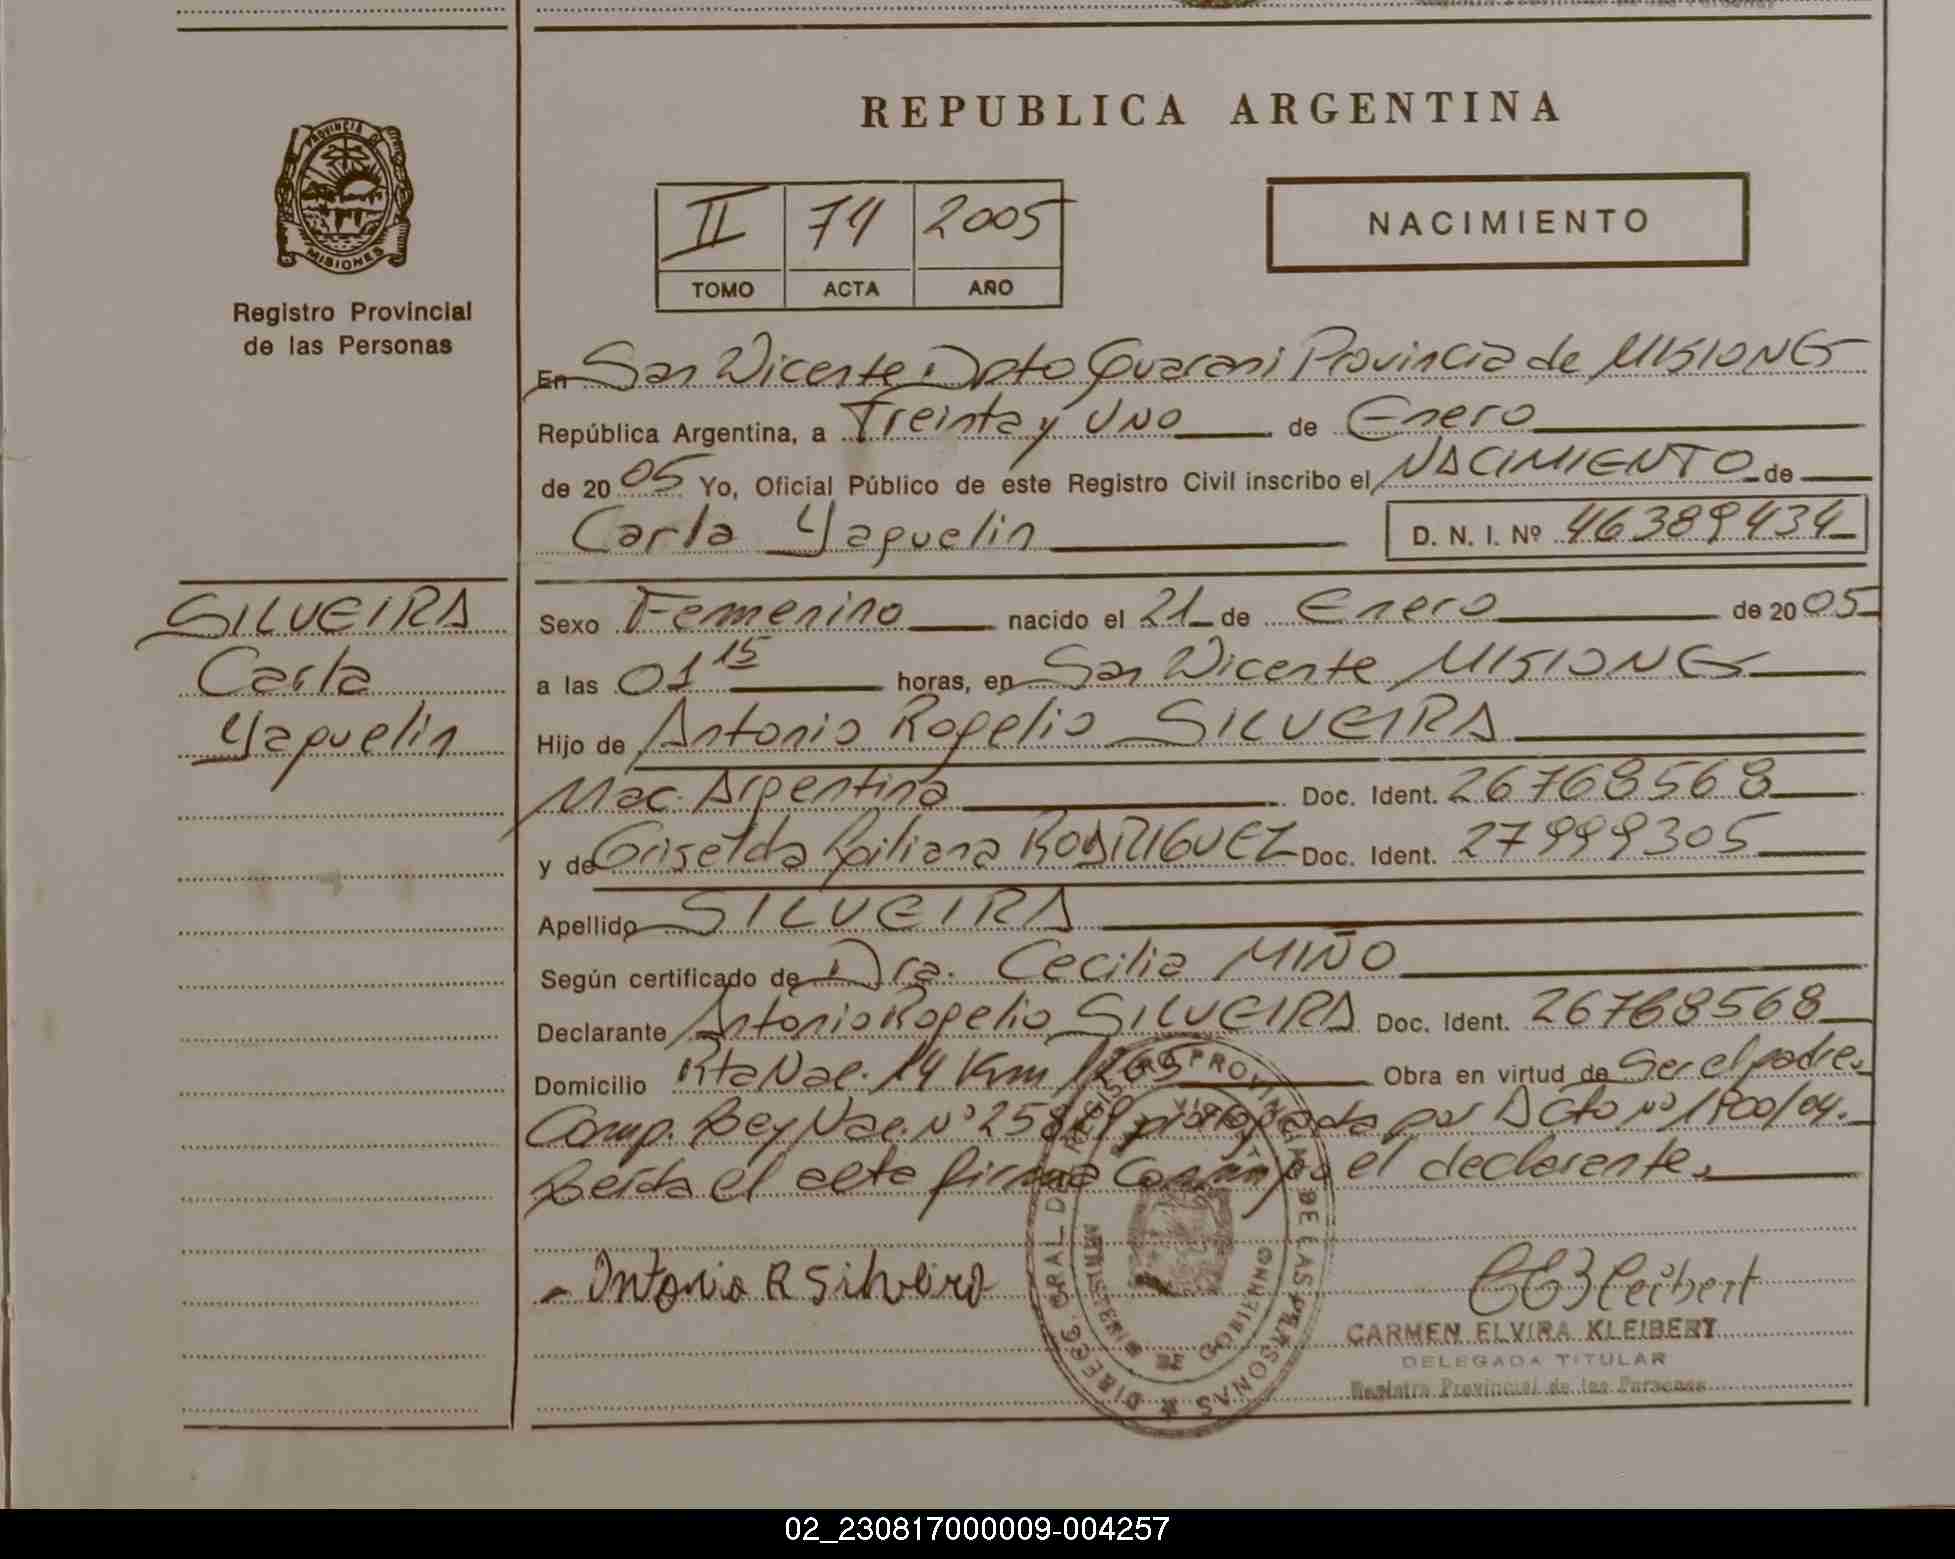 REPUBLICA ARGENTINA
PROVINCIA DE
MISIONES
Registro Provincial
de las Personas
II 74 2005
TOMO ACTA AÑO
NACIMIENTO
En San Vicente Dpto Guarani Provincia de MISIONES
República Argentina, a Treinta y UNO de Enero
de 2005 Yo, Oficial Público de este Registro Civil inscribo el NACIMIENTO de
Carla Yaquelin D. N. I. Nº 46389434
SILVEIRA
Carla
Yaquelin
Sexo Femenino nacido el 21 de Enero de 2005
a las 01 15 horas, en San Vicente MISIONES
Hijo de Antonio Rogelio SILVEIRA
Nac. Argentina Doc. Ident. 26768568
y de Griselda Liliana RODRIGUEZ Doc. Ident. 27999305
Apellido SILVEIRA
Según certificado de Dra. Cecilia MIÑO
Declarante Antonio Rogelio SILVEIRA Doc. Ident. 26768568
Domicilio Rta Nac. 14 Km 1265 Obra en virtud de Ser el padre.
Comp. Ley Nac. Nº prorrogada por Dcto Nº 1900/04.
Leída el acta firma Conmigo el declarante.
- Antonio R Silveira
CARMEN ELVIRA KLEIBERT
DELEGADA TITULAR
Registro Provincial de las Personas
DIRECC. GRAL DEL REGISTRO PROVINCIAL DE LAS PERSONAS
MINISTERIO DE GOBIERNO
02_230817000009-004257